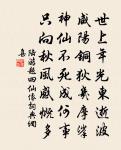 世上年光東逝波
咸陽銅狄幾摩挲
神仙不死成何事
只向秋風感慨多
陸游題四仙像詞典網
集